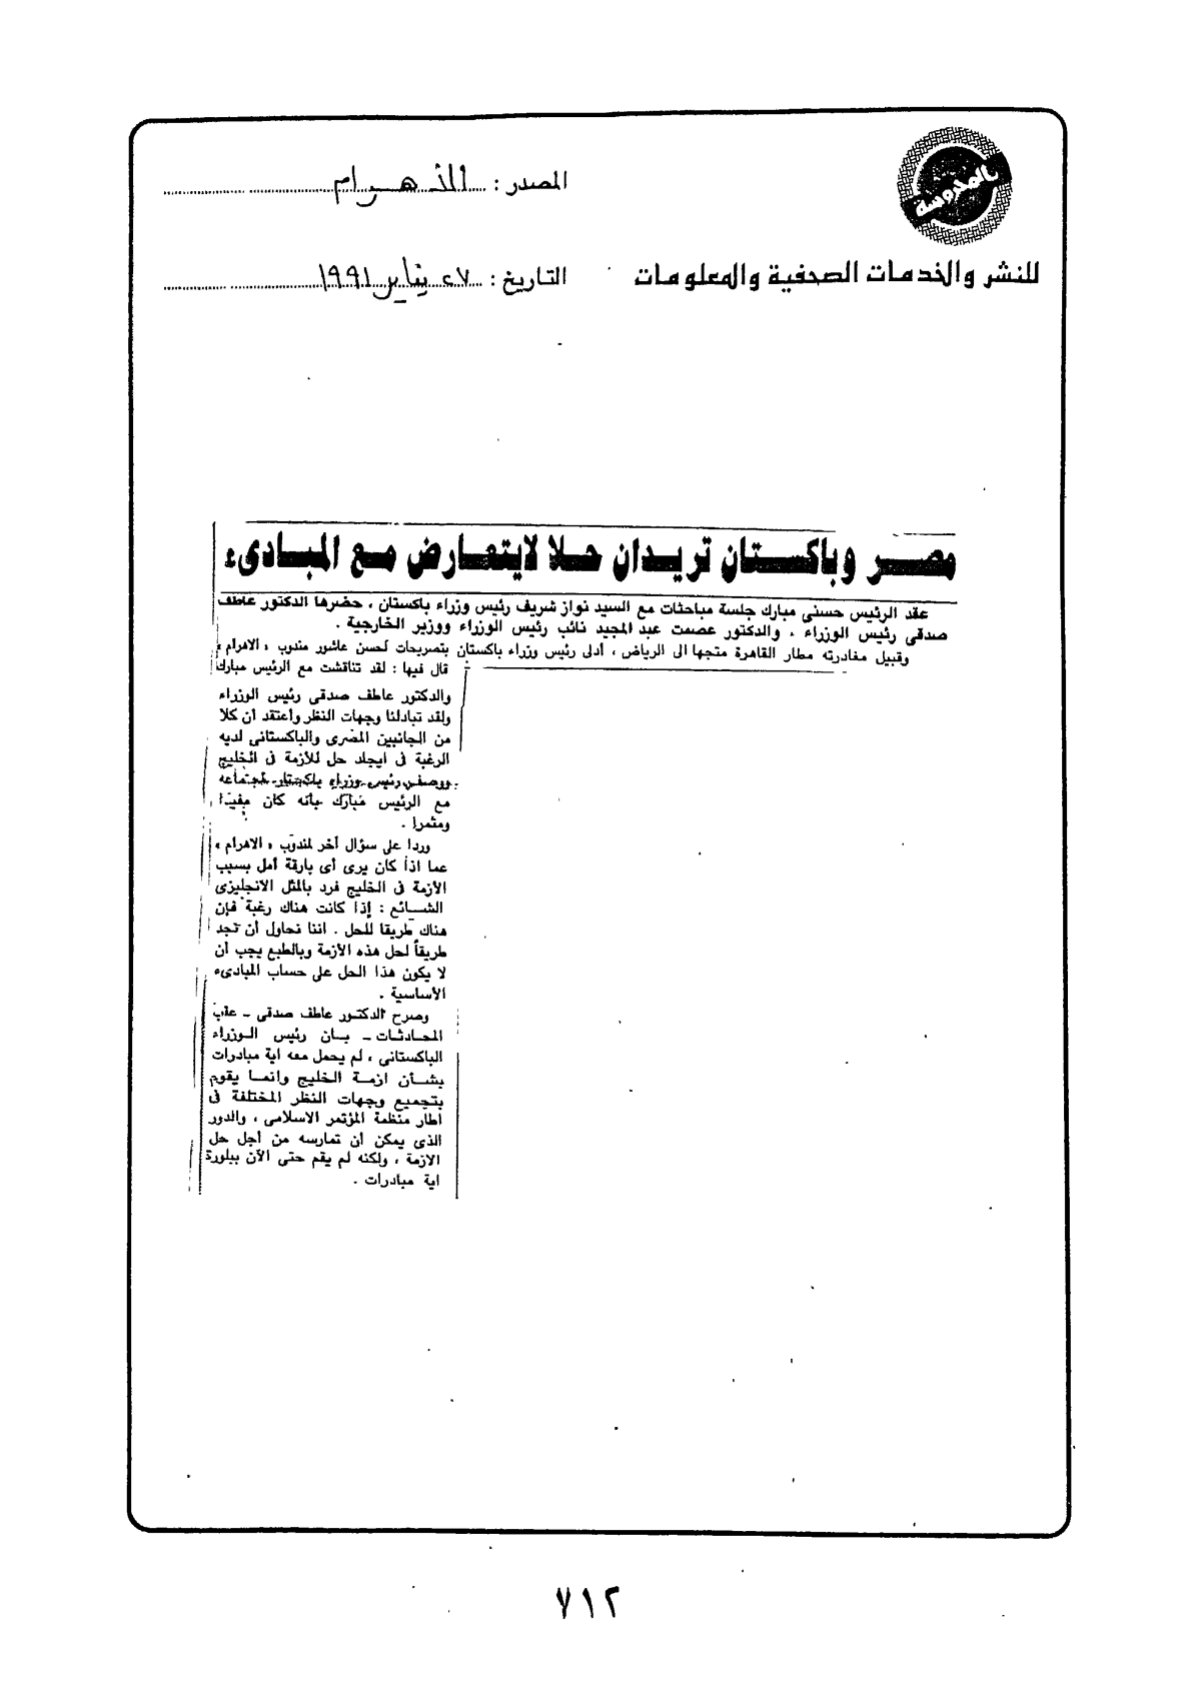 المحروسة
للنشر والخدمات الصحفية والمعلومات
المصدر : الأهرام
التاريخ : ٢٧ يناير ١٩٩١
مصر وباكستان تريدان حلا لايتعارض مع المبادىء
عقد الرئيس حسنى مبارك جلسة مباحثات مع السيد نواز شريف رئيس وزراء باكستان ، حضرها الدكتور عاطف
صدقى رئيس الوزراء ، والدكتور عصمت عبد المجيد نائب رئيس الوزراء ووزير الخارجية .
وقبيل مغادرته مطار القاهرة متجها الى الرياض ، أدلى رئيس وزراء باكستان بتصريحات لحسن عاشور مندوب « الاهرام »
قال فيها : لقد تناقشت مع الرئيس مبارك
والدكتور عاطف صدقى رئيس الوزراء
ولقد تبادلنا وجهات النظر وأعتقد أن كلا
من الجانبين المصرى والباكستانى لديه
الرغبة فى ايجاد حل للأزمة فى الخليج
ووصف رئيس وزراء باكستان اجتماعه
مع الرئيس مبارك بأنه كان مفيدا
ومثمرا .
وردا على سؤال أخر لمندوب « الاهرام »
عما اذا كان يرى أى بارقة أمل بسبب
الأزمة فى الخليج فرد بالمثل الانجليزى
الشائع : إذا كانت هناك رغبة فإن
هناك طريقا للحل . اننا نحاول أن نجد
طريقاً لحل هذه الأزمة وبالطبع يجب أن
لا يكون هذا الحل على حساب المبادىء
الأساسية .
وصرح الدكتور عاطف صدقى ـ عقب
المحادثات ـ بان رئيس الوزراء
الباكستانى ، لم يحمل معه اية مبادرات
بشأن ازمة الخليج وانما يقوم
بتجميع وجهات النظر المختلفة فى
أطار منظمة المؤتمر الاسلامى ، والدور
الذى يمكن أن تمارسه من أجل حل
الازمة ، ولكنه لم يقم حتى الآن ببلورة
اية مبادرات .
٧١٢